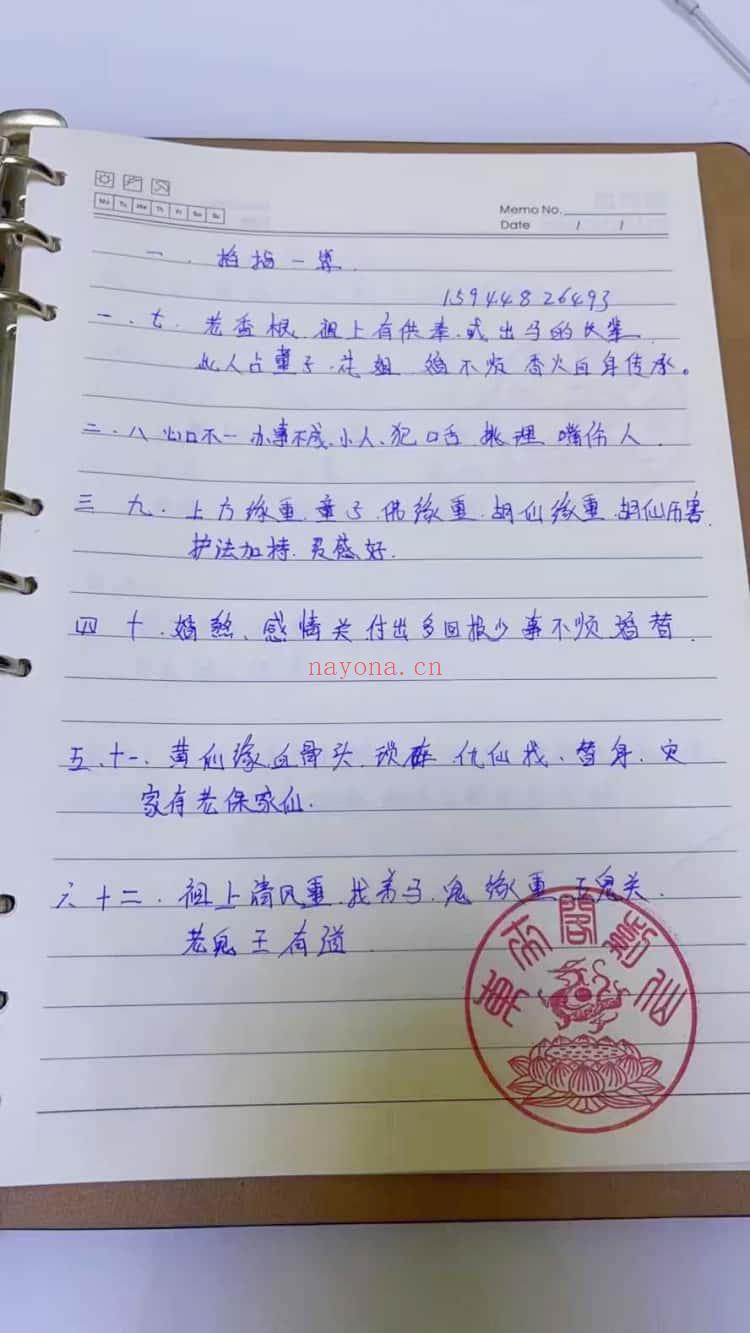 Mo Tu We Th Fr Sa Su
Memo No.
Date / /
一．掐指一算
15944826493
一．七．老香根．祖上有供奉．或出马的长辈．
此人占童子．花姐 婚不顺 香火自身传承。
二．八 心口不一 办事不成．小人．犯口舌 挑理 嘴伤人．
三 九．上方缘重．童子．佛缘重．胡仙缘重．胡仙厉害．
护法加持．灵感好．
四 十．婚煞．感情关 付出多回报少 事不顺 婚替．
nayona.cn
五．十一．黄仙缘．白骨头．琐碎．仇仙找．替身．灾
家有老保家仙．
六 十二．祖上清风重．找弟马．鬼缘重．五鬼关．
老鬼王有道